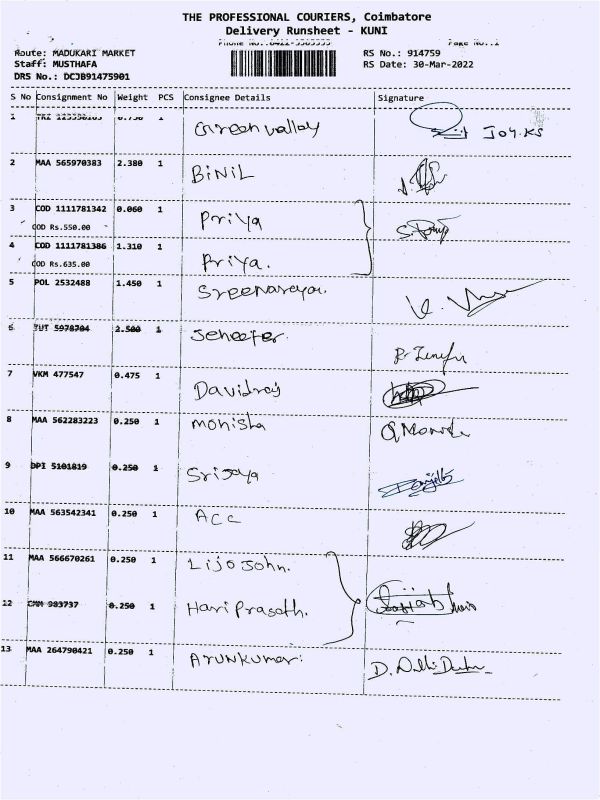 THE PROFESSIONAL COURIERS, Coimbatore
Delivery Runsheet - KUNI
Phone No.:0422-
Page No.:1
Route: MADUKARI MARKET
RS No.: 914759
Staff: MUSTHAFA
RS Date: 30-Mar-2022
DRS No.: DCJB91475901
S No Consignment No Weight PCS Consignee Details Signature
1 0.750 1 Green valley JOY.KS
2 MAA 565970383 2.380 1 BiNiL
3 COD 1111781342 0.060 1 Priya
COD Rs.550.00
4 COD 1111781386 1.310 1 Priya.
COD Rs.635.00
5 POL 2532488 1.450 1
6 TUT 5978704 2.500 1
7 VKM 477547 0.475 1 Davidraj
8 MAA 562283223 0.250 1 monisha
9 DPI 5101819 0.250 1 Srijaya
10 MAA 563542341 0.250 1 ACC
11 MAA 566670261 0.250 1 Lijo John.
12 CMM 983737 0.250 1 Hari Prasath.
13 MAA 264790421 0.250 1 Arunkumar.